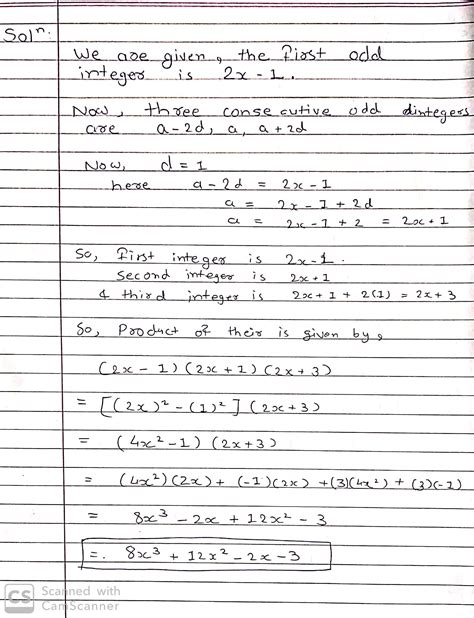 Solⁿ:
We are given, the first odd
integer is 2x - 1.
Now, three consecutive odd dintegers
are a-2d, a, a+2d
Now, d = 1
here a-2d = 2x-1
a = 2x-1+2d
a = 2x-1+2 = 2x+1
So, first integer is 2x-1.
second integer is 2x+1
& third integer is 2x+1+2(1) = 2x+3
So, Product of their is given by,
(2x-1)(2x+1)(2x+3)
= [(2x)²-(1)²](2x+3)
= (4x²-1)(2x+3)
= (4x²)(2x)+(-1)(2x)+(3)(4x²)+(3)(-1)
= 8x³-2x+12x²-3
=. 8x³+12x²-2x-3
CS Scanned with
CamScanner